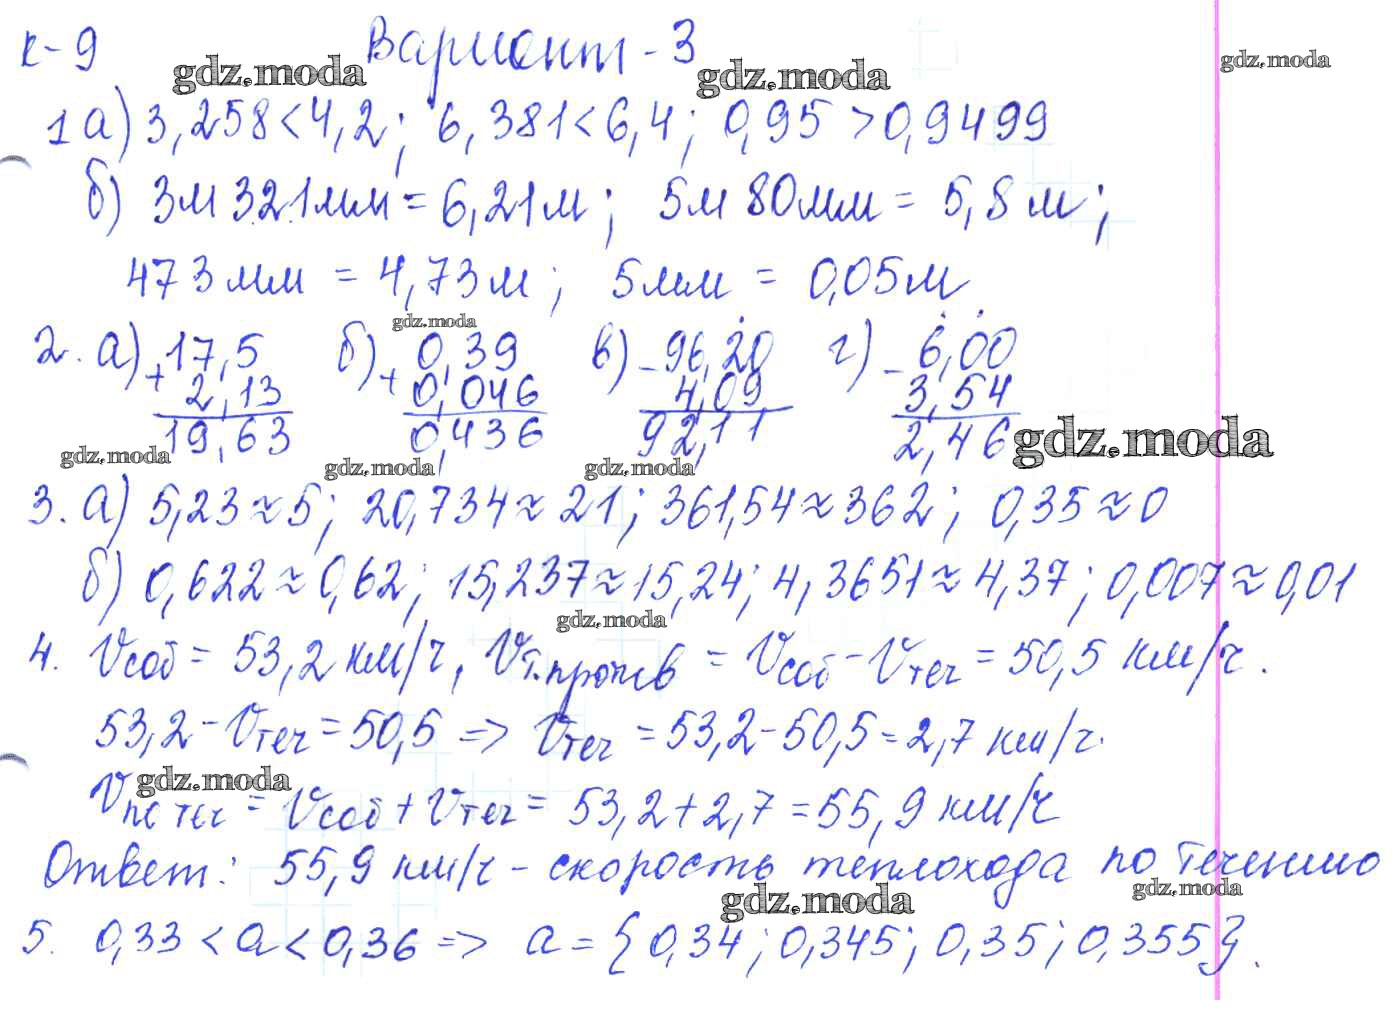 к-9 Вариант-3
gdz.moda gdz.moda gdz.moda
1 а) 3,258<4,2; 6,381<6,4; 0,95>0,9499
б) 3м 321мм = 6,21м; 5м 80мм = 5,8м;
473мм = 4,73м; 5мм = 0,05м
gdz.moda
2. а) + 17,5 б) + 0,39 в) - 96,20 г) - 6,00
2,13 0,046 4,09 3,54
19,63 0,436 92,11 2,46
gdz.moda gdz.moda gdz.moda gdz.moda
3. а) 5,23≈5; 20,734≈21; 361,54≈362; 0,35≈0
б) 0,622≈0,62; 15,237≈15,24; 4,3651≈4,37; 0,007≈0,01
gdz.moda
4. Vсоб = 53,2 км/ч, Vт.против = Vсоб - Vтеч = 50,5 км/ч.
53,2 - Vтеч = 50,5 => Vтеч = 53,2-50,5=2,7 км/ч.
gdz.moda
Vпо теч = Vсоб + Vтеч = 53,2+2,7=55,9 км/ч
Ответ: 55,9 км/ч - скорость теплохода по течению
gdz.moda gdz.moda
5. 0,33<а<0,36 => а = {0,34; 0,345; 0,35; 0,355}.